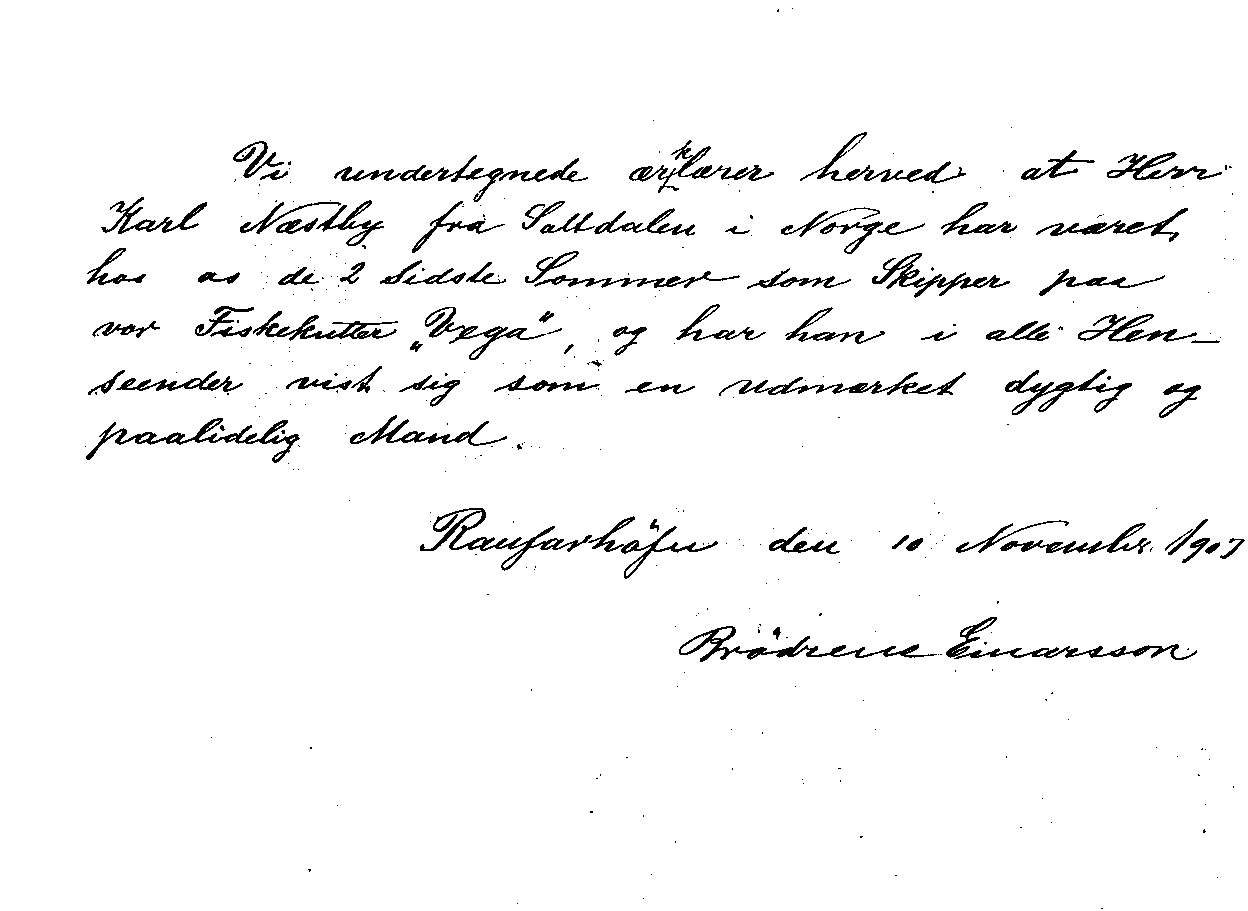 Vi undertegnede ærklærer herved at Herr
Karl Næstby fra Saltdalen i Norge har været
hos os de 2 sidste Sommer som Skipper paa
vor Fiskekutter „Vega“, og har han i alle Hen-
seender vist sig som en udmærket dygtig og
paalidelig Mand.
Raufarhöfn den 10 November 1907
Brödrene Einarsson